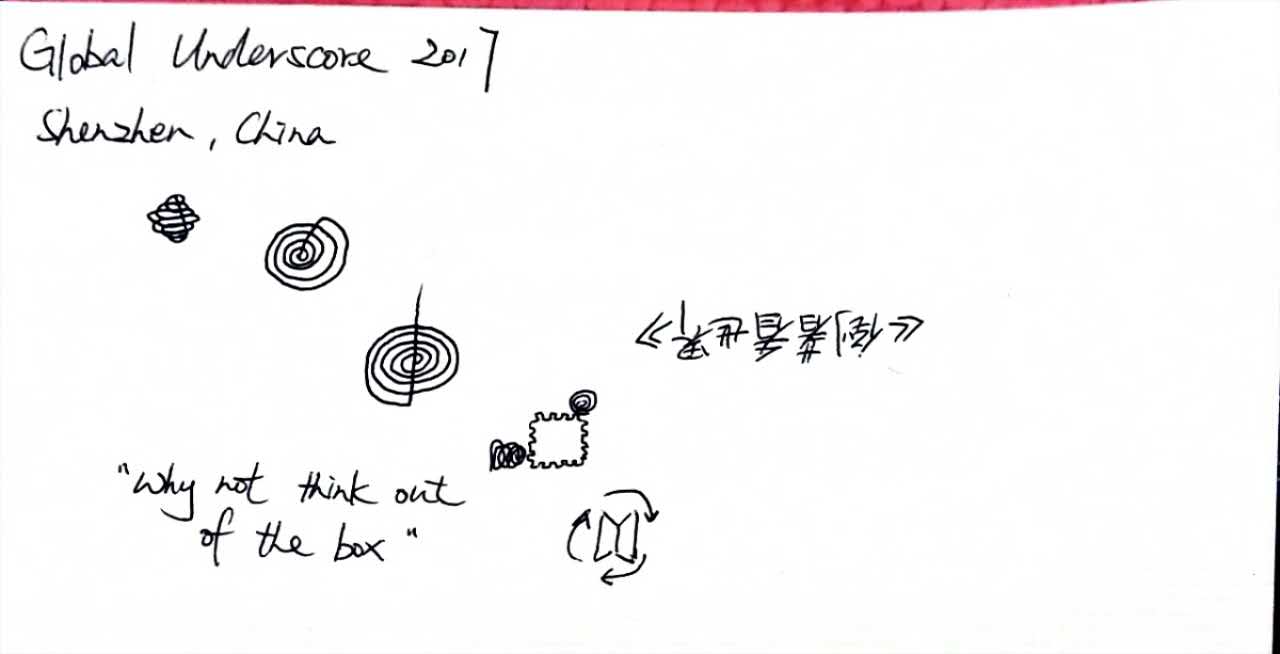 Global Underscore 2017
Shenzhen, China
"Why not think out
of the box"